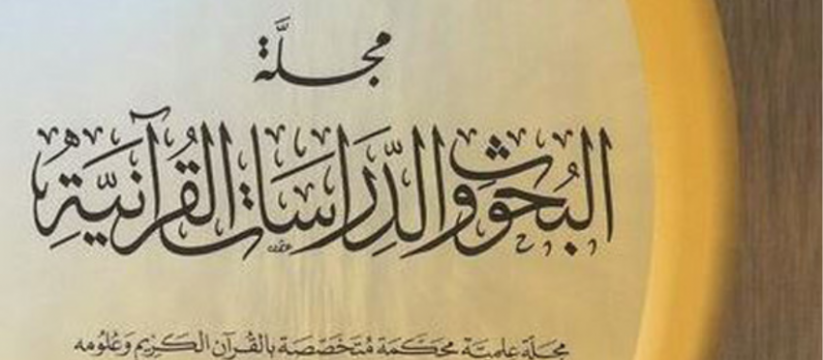 مجلَّة
البُحُوثِ وَالدِّرَاسَاتِ القُرآنيَّةِ
مجَلَّة علميَّة محكَّمَة مُتَخَصِّصَة بالقُرآن الكَرِيْم وَعُلُومِه